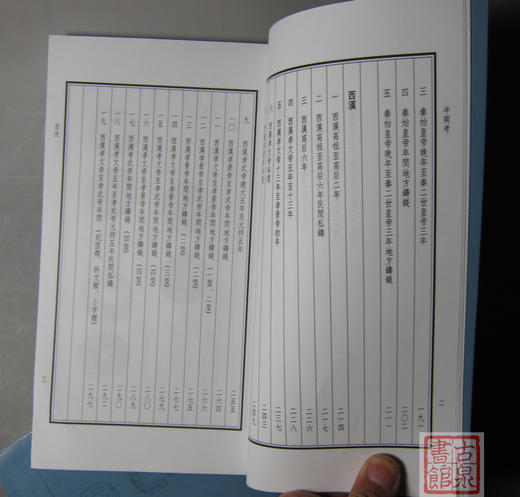 半兩考
三 秦始皇帝晚年至秦二世皇帝三年
四 秦始皇帝年間地方鑄錢 二〇二
五 秦始皇帝晚年至秦二世皇帝三年地方鑄錢 二一一
西漢
一 西漢高祖至高后二年
二 西漢高祖至高后六年民間私鑄 二一四
三 西漢高后六年 二一八
四 西漢孝文帝五年至十三年 二二八
五 西漢孝文帝十三年至孝景帝初年 二三七
二四三
二四九
二
九 西漢孝武帝建元五年至元狩五年 二五五
一〇 西漢孝景帝至孝武帝年間地方鑄錢 二六四
一一 西漢孝文帝至孝景帝年間地方鑄錢(一型、二型) 二六六
一二 西漢孝景帝至孝武帝年間地方鑄錢(二型) 二七五
一三 西漢孝文帝至孝景帝年間地方鑄錢(三型) 二七七
一五 西漢孝文帝至孝武帝年間地方鑄錢(四型) 二八〇
一六 西漢孝文帝至孝武帝年間地方鑄錢(四型) 二八九
一七 西漢孝武帝年間地方鑄錢(四型) 二九〇
一八 西漢孝文帝五年至孝武帝元狩五年民間私鑄 二九二
一九 西漢孝文帝至孝武帝年間(紀值類、科文類、小字類) 二九七
目次
三
古泉書館